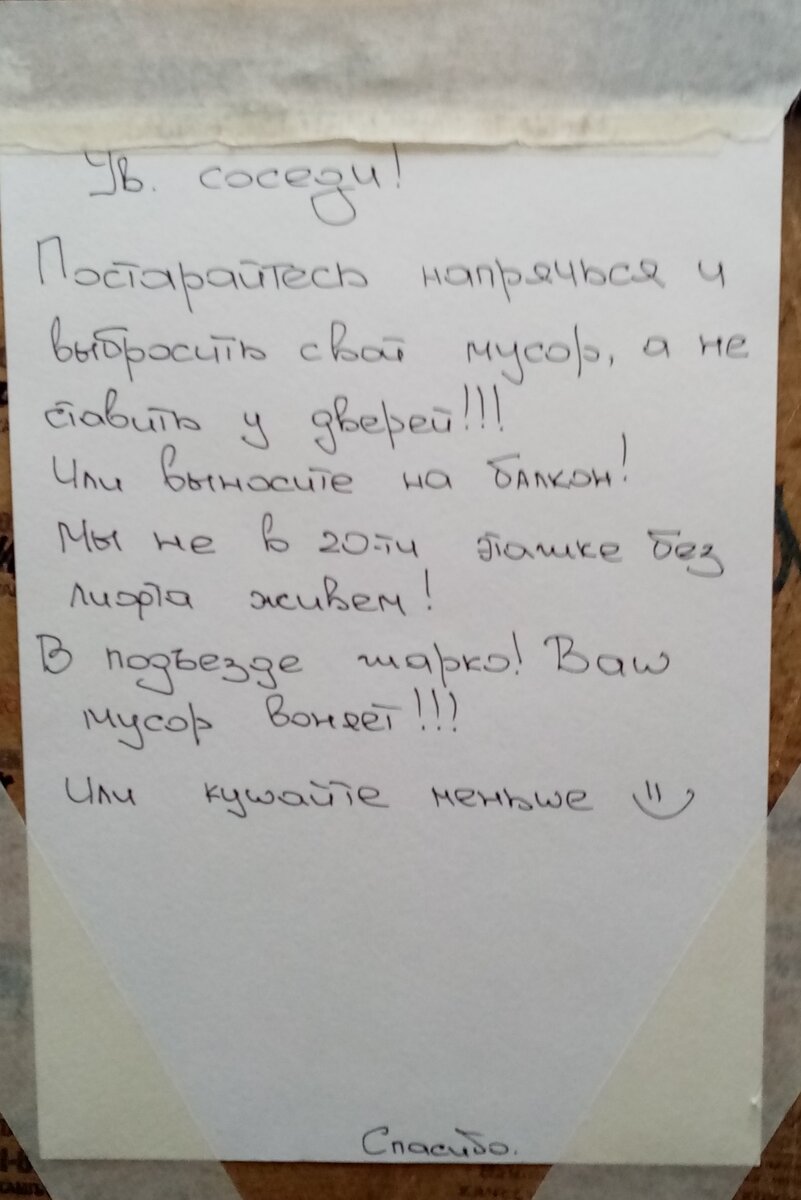 Ув. соседи!
Постарайтесь напрячься и
выбросить свой мусор, а не
ставить у дверей!!!
Или выносите на балкон!
Мы не в 20-ти эташке без
лифта живем!
В подъезде жарко! Ваш
мусор воняет!!!
Или кушайте меньше =)
Спасибо.